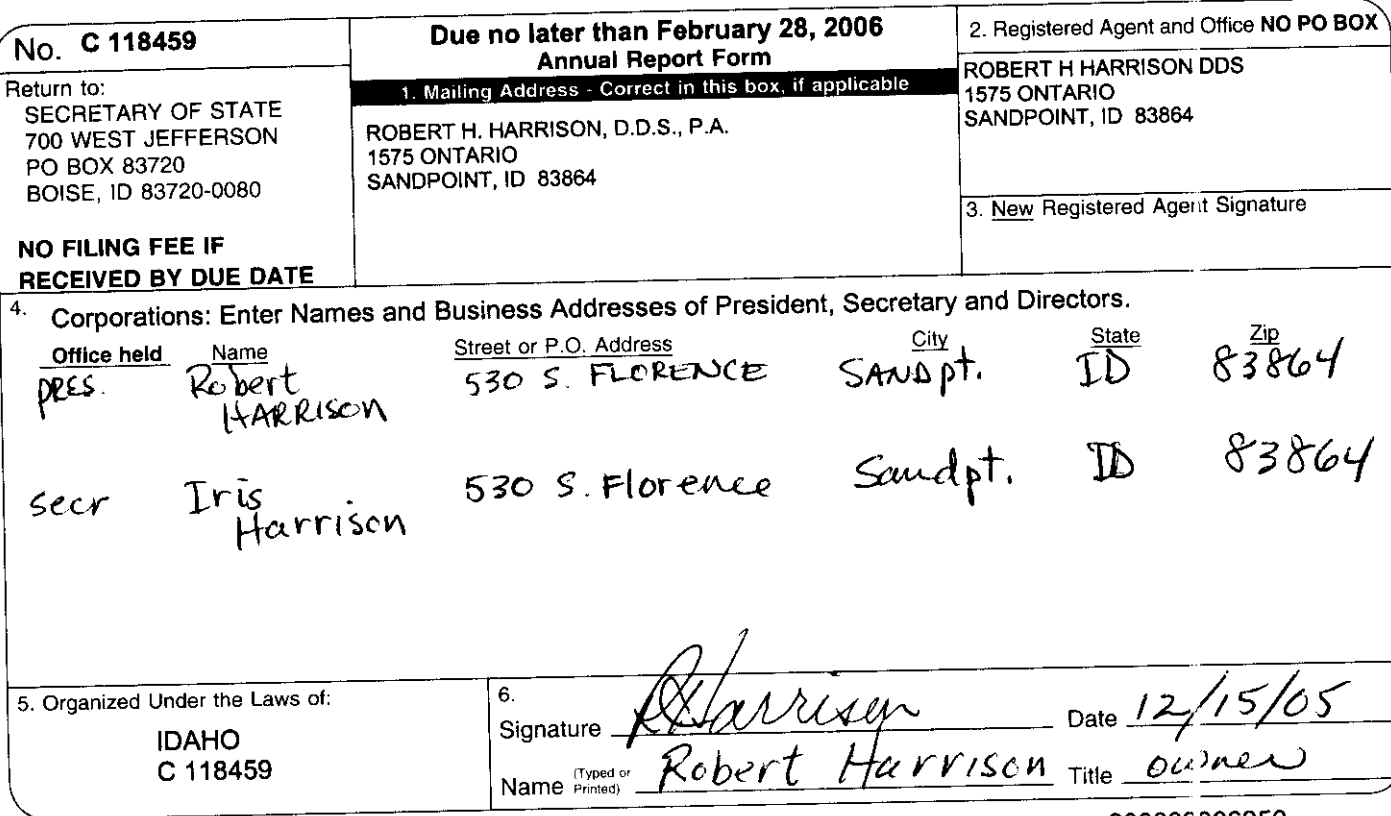 No. C 118459
Return to:
SECRETARY OF STATE
700 WEST JEFFERSON
PO BOX 83720
BOISE, ID 83720-0080
NO FILING FEE IF
RECEIVED BY DUE DATE
Due no later than February 28, 2006
Annual Report Form
1. Mailing Address - Correct in this box, if applicable
ROBERT H. HARRISON, D.D.S., P.A.
1575 ONTARIO
SANDPOINT, ID 83864
2. Registered Agent and Office NO PO BOX
ROBERT H HARRISON DDS
1575 ONTARIO
SANDPOINT, ID 83864
3. New Registered Agent Signature
4. Corporations: Enter Names and Business Addresses of President, Secretary and Directors.
Office held Name Street or P.O. Address City State Zip
PRES. Robert 530 S. FLORENCE SANDpt. ID 83864
HARRISON
secr Iris 530 S. Florence Sandpt. ID 83864
Harrison
5. Organized Under the Laws of:
IDAHO
C 118459
6.
Signature RHarrison Date 12/15/05
Name (Typed or Printed) Robert Harrison Title owner